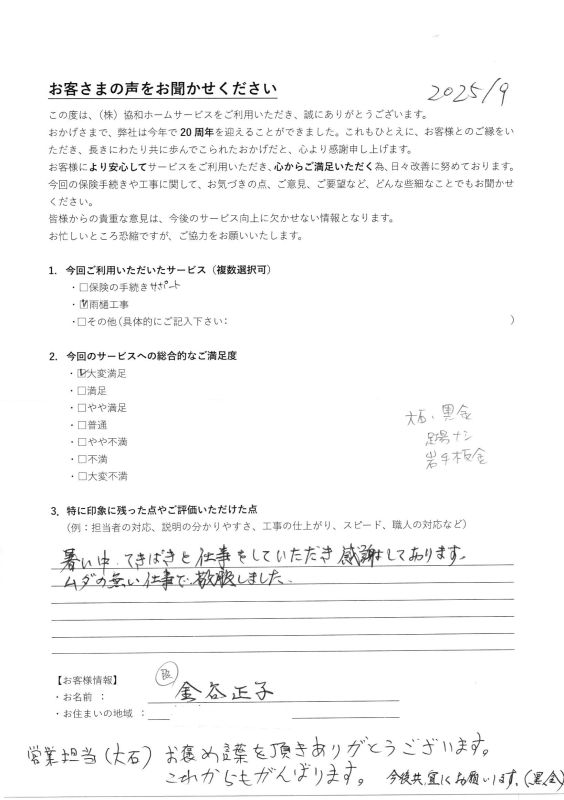 お客さまの声をお聞かせください
2025/9
この度は、（株）協和ホームサービスをご利用いただき、誠にありがとうございます。
おかげさまで、弊社は今年で20周年を迎えることができました。これもひとえに、お客様とのご縁をい
ただき、長きにわたり共に歩んでこられたおかげだと、心より感謝申し上げます。
お客様により安心してサービスをご利用いただき、心からご満足いただく為、日々改善に努めております。
今回の保険手続きや工事に関して、お気づきの点、ご意見、ご要望など、どんな些細なことでもお聞かせ
ください。
皆様からの貴重な意見は、今後のサービス向上に欠かせない情報となります。
お忙しいところ恐縮ですが、ご協力をお願いいたします。
1. 今回ご利用いただいたサービス（複数選択可）
・□保険の手続きサポート
・☑雨樋工事
・□その他(具体的にご記入下さい: ）
2. 今回のサービスへの総合的なご満足度
・☑大変満足
・□満足
・□やや満足
・□普通
・□やや不満
・□不満
・□大変不満
大石・黒金
足場ナシ
岩手板金
3. 特に印象に残った点やご評価いただけた点
（例：担当者の対応、説明の分かりやすさ、工事の仕上がり、スピード、職人の対応など）
暑い中、てきぱきと仕事をしていただき感謝しております。
ムダの無い仕事で、敬服しました。
【お客様情報】
・お名前 ： 金谷正子
・お住まいの地域 ：
営業担当（大石）お褒め言葉を頂きありがとうございます。
これからもがんばります。 今後共、宜しくお願いします。（黒金）